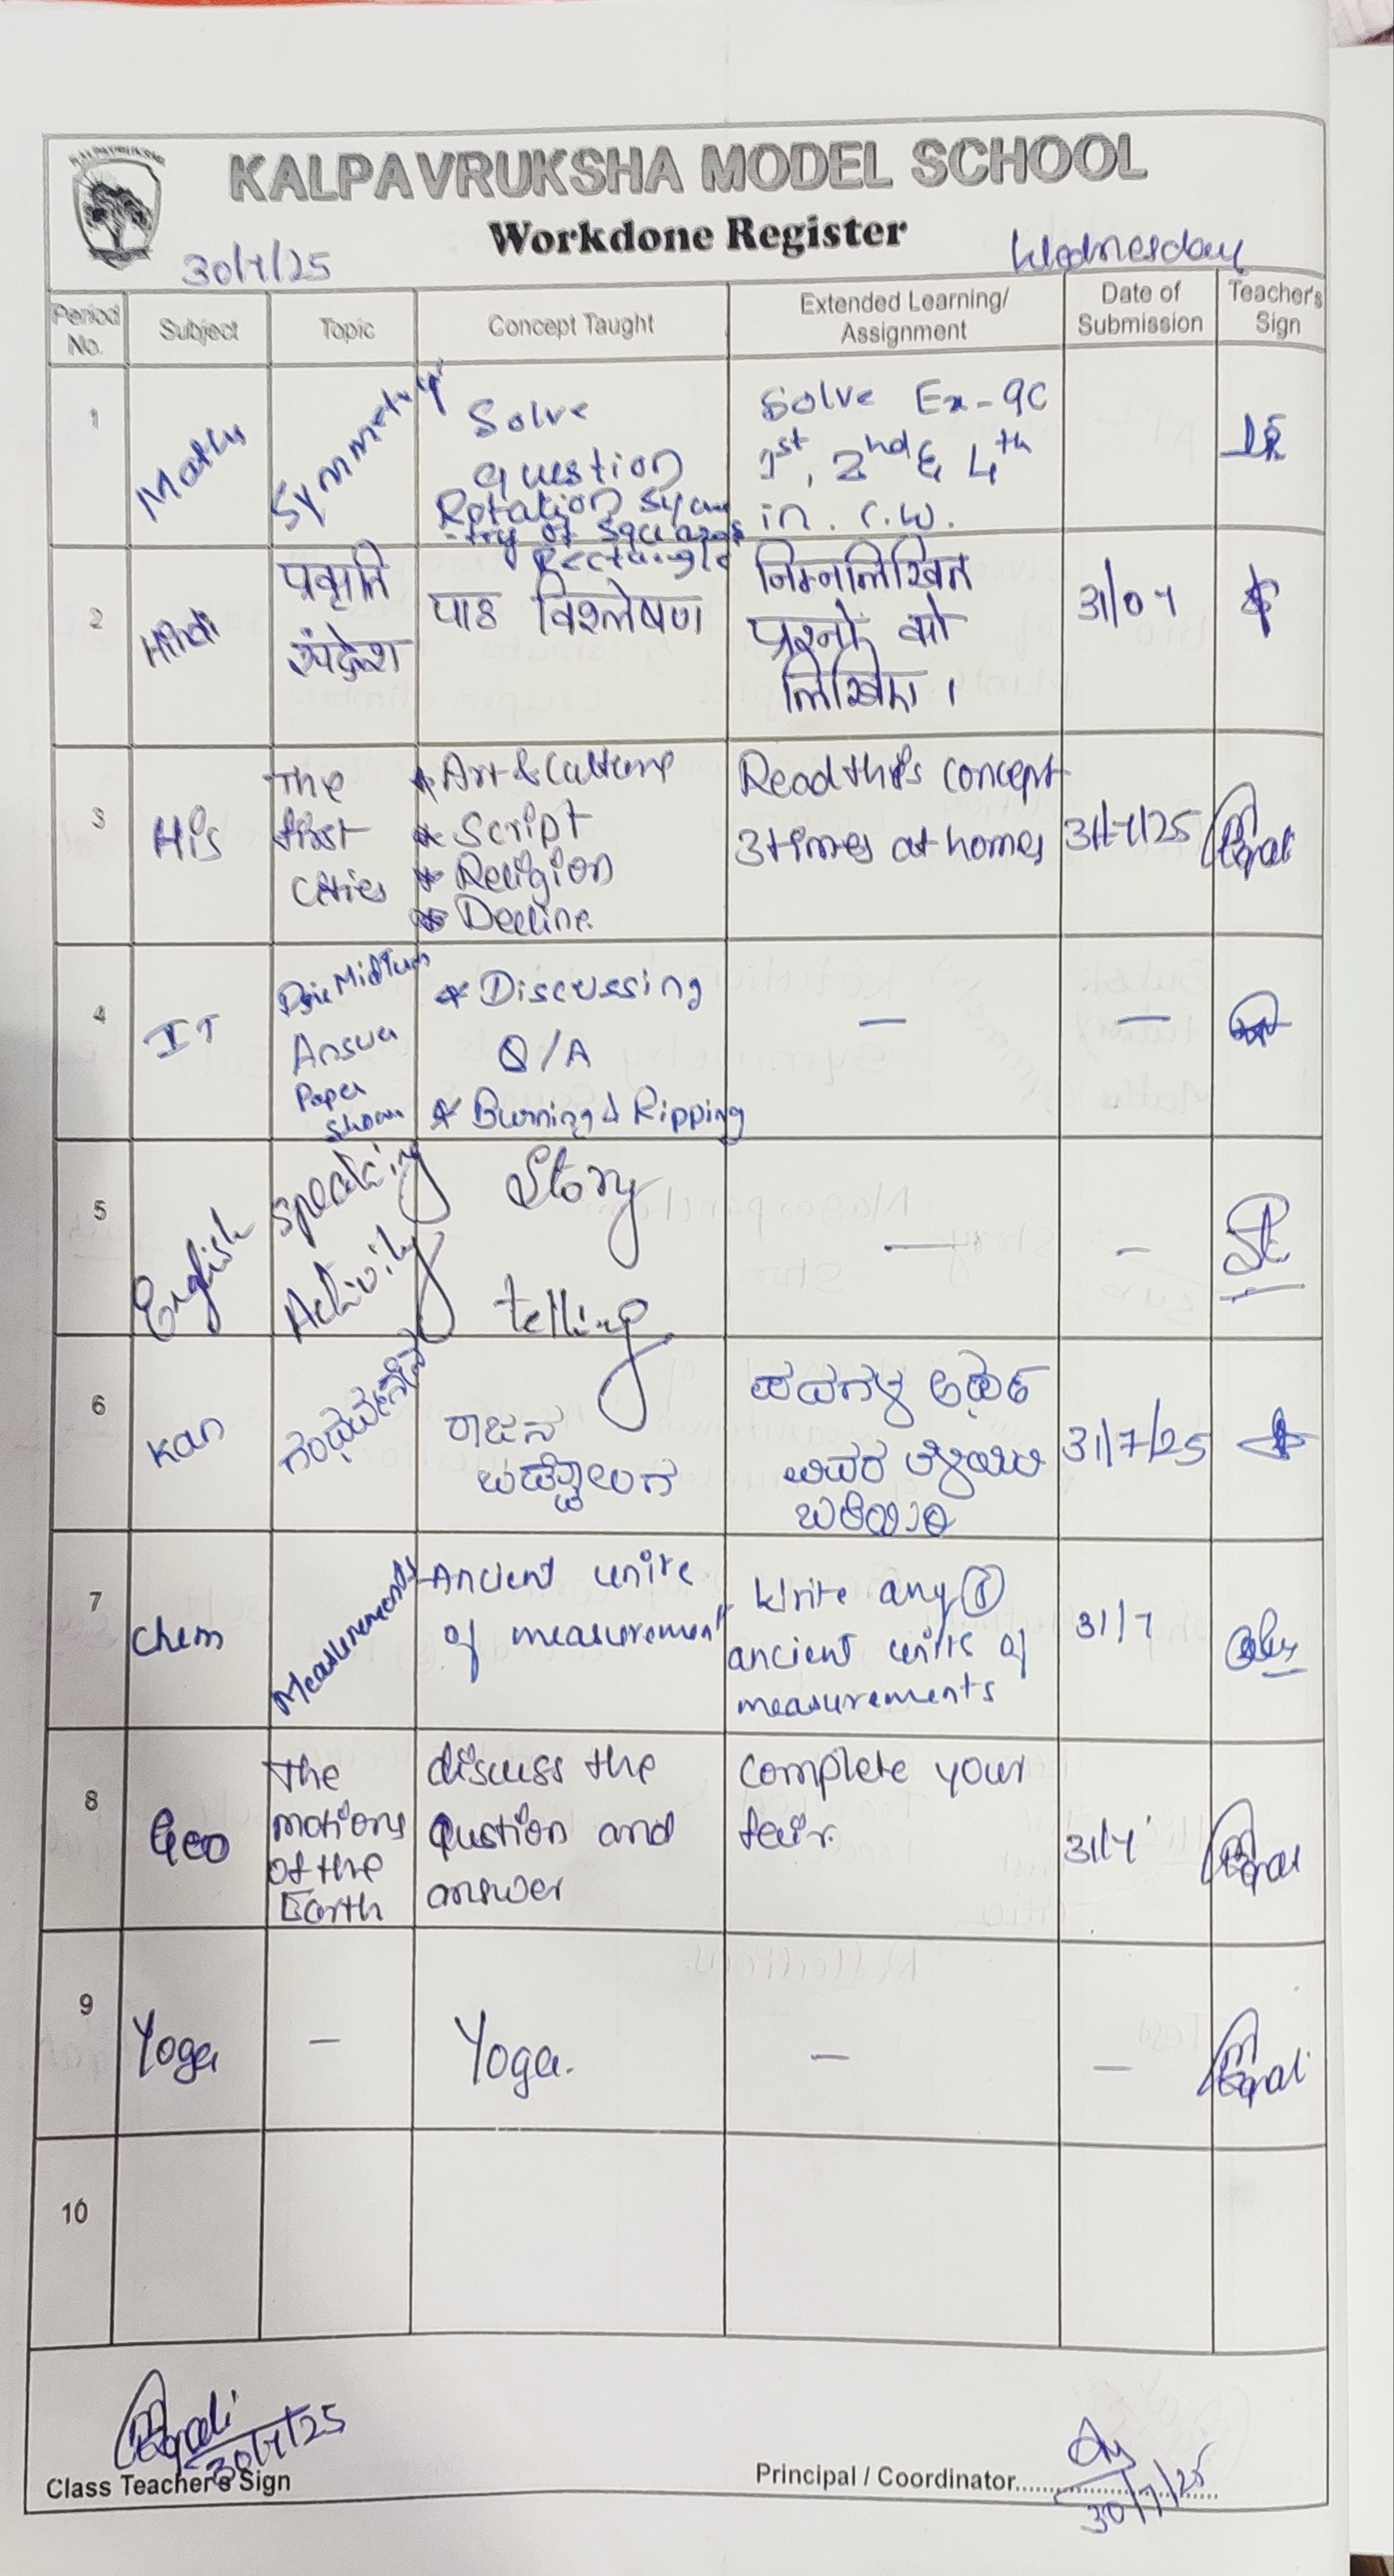 KALPAVRUKSHA
KALPAVRUKSHA MODEL SCHOOL
Workdone Register
30/7/25 Wednesday
Period No. Subject Topic Concept Taught Extended Learning/ Assignment Date of Submission Teacher's Sign
1 Maths Symmetry
Solve
question
Rotation Symm
-try of square &
Rectangle
Solve Ex-9C
1st, 2nd & 4th
in. C.W.
2 Hindi
प्रकृति
संदेश
पाठ विश्लेषण
निम्नलिखित
प्रश्नों को
लिखिए ।
31/07
3 His
The
first
Cities
* Art & Culture
* Script
* Religion
* Decline.
Read this concept
3 times at homes
31/7/25
4 IT
MidTerm
Answer
Paper
Shown
* Discussing
Q/A
* Burning & Ripping
—
—
5 English
Speaking
Activity
Story
telling
—
—
6 Kan
ರಾಜನ
ಪದಗಳ ಅರ್ಥ
ಬರೆಯಿರಿ
31/7/25
7 Chem
Measurements
Ancient units
of measurement
Write any
ancient units of
measurements
31/7
8 Geo
The
motions
of the
Earth
discuss the
Qustion and
answer
Complete your
fair.
31/7
9 Yoga
—
Yoga.
—
—
10
30/7/25
Class Teacher's Sign
Principal / Coordinator
30/7/25